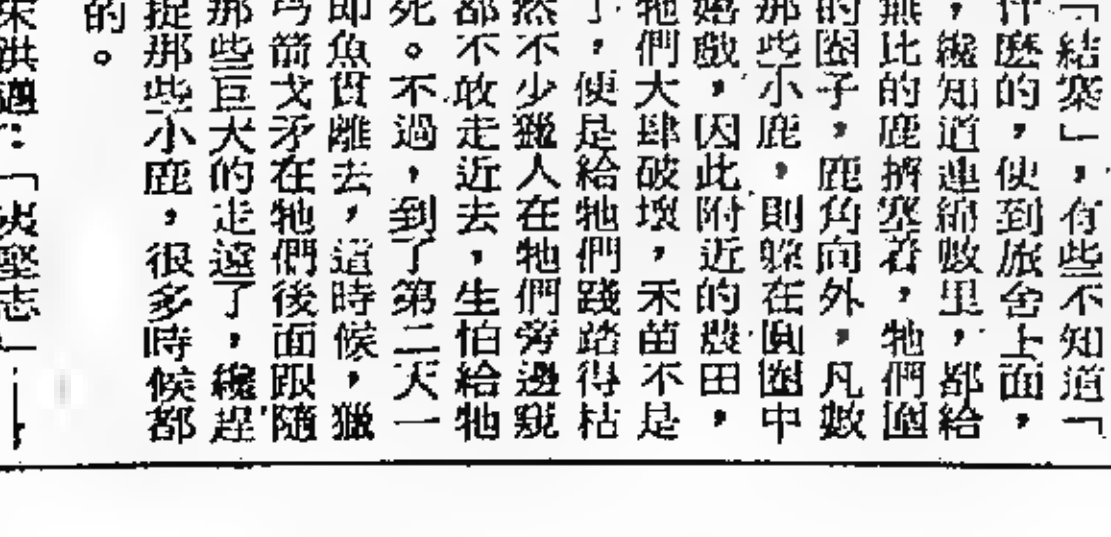 「結寨」，有些不知道「
什麽的，便到旅舍上面，
，纔知道連綿數里，都給
無比的鹿擠塞着，牠們圍
的圈子，鹿角向外，凡數
那些小鹿，則躲在圓圈中
嬉戲，因此附近的農田，
牠們大肆破壞，禾苗不是
了，便是給牠們踐踏得枯
然不少獵人在牠們旁邊窺
都不敢走近去，生怕給牠
死。不過，到了第二天一
即魚貫離去，這時候，獵
弓箭戈矛在牠們後面跟隨
那些巨犬的走遠了，纔趕
捉那些小鹿，很多時候都
的。
宋洪邁：「夷堅志」—